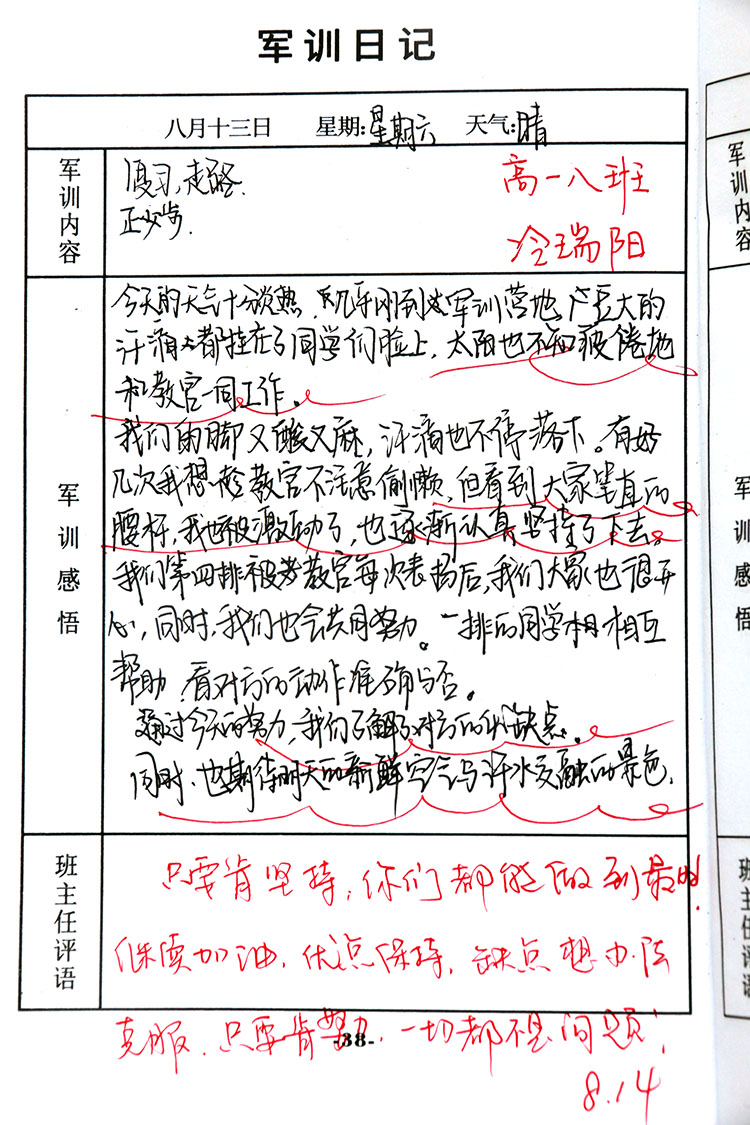 军训日记
八月十三日 星期:星期六 天气:晴
军训内容
复习,走路.
正步.
高一八班
冷瑞阳
军训感悟
今天的天气十分炎热,几乎刚到达军训营地,卢豆大的
汗滴都挂在了同学们脸上,太阳也不知疲倦地
和教官一同工作。
我们的脚又酸又麻,汗滴也不停落下。有好
几次我想趁教官不注意偷懒,但看到大家坚直的
腰杆,我也被激动了,也逐渐认真坚持了下去。
我们第四排被教官每次表扬后,我们大家也很开
心,同时,我们也会共同努力。一排的同学相相互
帮助,看对方的动作准确与否。
通过今天的努力,我们了解了对方的优缺点。
同时,也期待明天的新鲜空气与汗水交融的景色.
班主任评语
只要肯坚持,你们都能做到最
继续加油,优点保持,缺点想办法
克服.只要肯努力,一切都不是问题!
-38-
8.14
军训内容
军训感悟
班主任评语